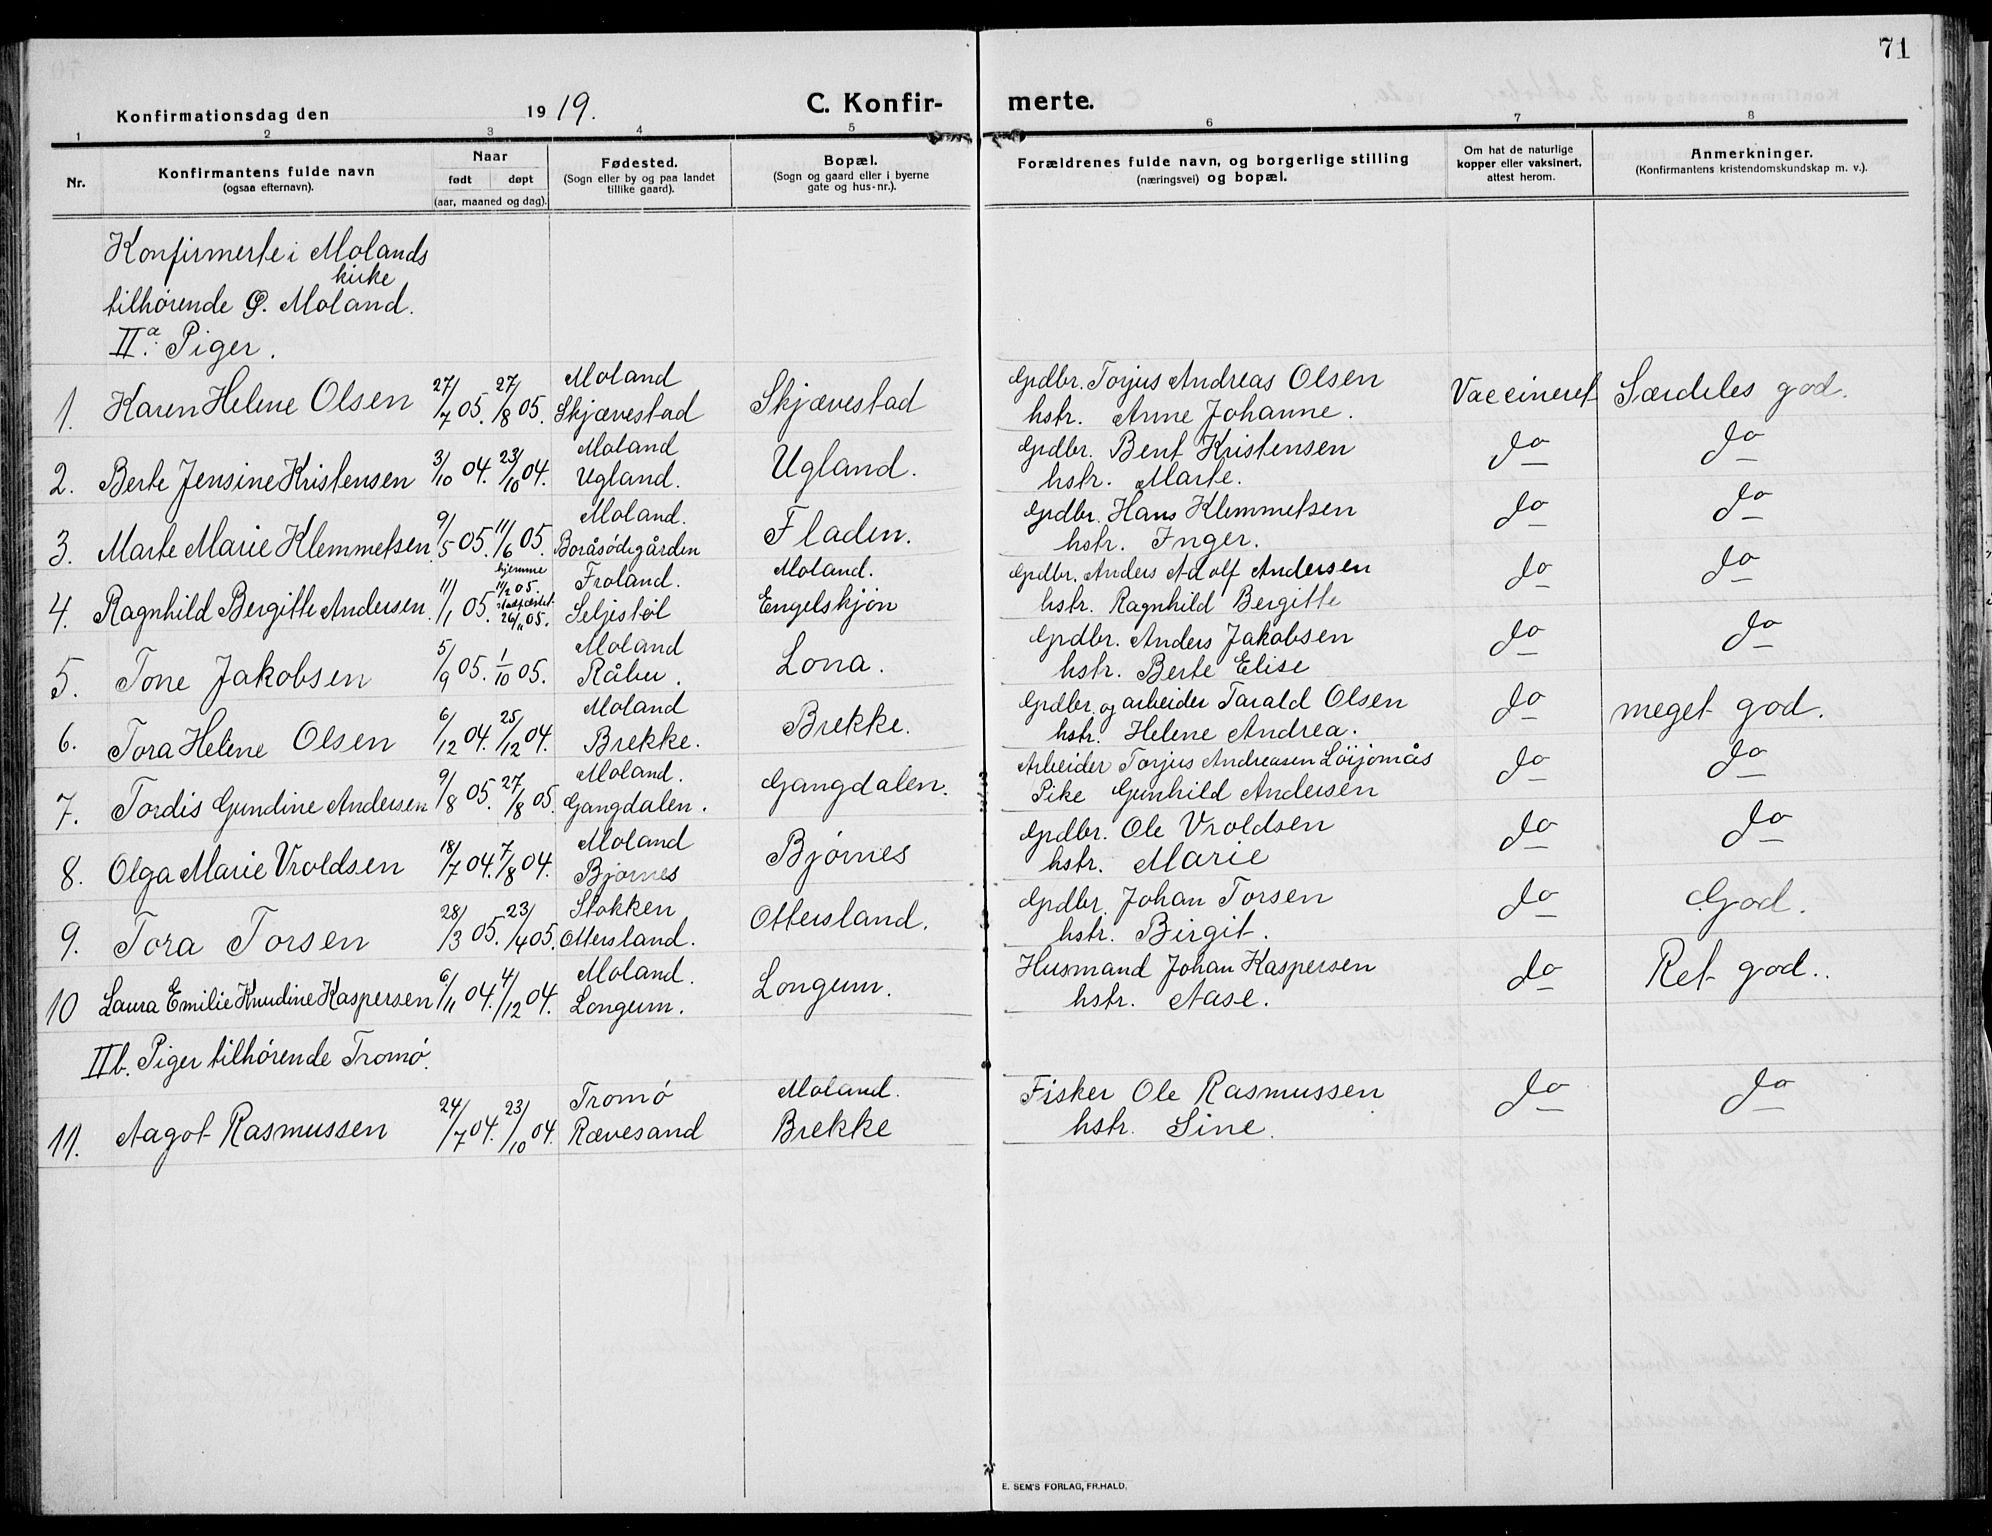 71
Konfirmationsdag den 1919.
C. Konfirmerte.
1 2 3 4 5 6 7 8
Nr.
Konfirmantens fulde navn
(ogsaa efternavn).
Naar
født døpt
(aar, maaned og dag).
Fødested.
(Sogn eller by og paa landet
tillike gaard).
Bopæl.
(Sogn og gaard eller i byerne
gate og hus-nr.).
Forældrenes fulde navn, og borgerlige stilling
(næringsvei) og bopæl.
Om hat de naturlige
kopper eller vaksinert,
attest herom.
Anmerkninger.
(Konfirmantens kristendomskundskap m. v.).
Konfirmerte i Molands
kirke
tilhørende Ø. Moland.
IIa. Piger.
1. Karen Helene Olsen 27/7 05. 27/8 05. Moland Skjævestad Skjævestad Grdbr. Torjus Andreas Olsen Vaccineret Særdeles god.
hstr. Anne Johanne.
2. Berte Jensine Kristensen 3/10 04. 23/10 04. Moland Ugland. Ugland. Grdbr. Bent Kristensen do do
hstr. Marte.
3. Marte Marie Klemmetsen. 9/5 05. 11/6 05. Moland. Boråsødegården Fladen. Grdbr. Hans Klemmetsen do do
hstr. Inger.
4. Ragnhild Bergitte Andersen. 11/1 05. hjemme 11/2 05. stadfæstet 26/11 05. Froland. Seljestøl Moland. Engelskjøn Grdbr. Anders Adolf Andersen do do
hstr. Ragnhild Bergitte
5. Tone Jakobsen 5/9 05. 1/10 05. Moland Råbu. Lona. Grdbr. Anders Jakobsen do do
hstr. Berte Elise
6. Tora Helene Olsen 6/12 04. 25/12 04. Moland Brekke. Brekke. Grdbr. og arbeider Tarald Olsen do meget god.
hstr. Helene Andrea.
7. Tordis Gundine Andersen 9/8 05. 27/8 05. Moland. Gangdalen. Gangdalen. Arbeider Torjus Andreasen Løijomås do do
Pike Gunhild Andersen
8. Olga Marie Vroldsen 18/7 04. 7/8 04. Moland Bjørnes Bjørnes Grdbr. Ole Vroldsen do do
hstr. Marie
9. Tora Torsen 28/3 05. 23/4 05. Stokken Ottersland. Ottersland. Grdbr. Johan Torsen do God.
hstr. Birgit.
10 Laura Emilie Knudine Kaspersen 6/11 04. 4/12 04. Moland. Longum. Longum. Husmand Johan Kaspersen do Ret god..
hstr. Aase.
IIb. Piger tilhørende Tromø.
11. Aagot Rasmussen 24/7 04. 23/10 04. Tromø Rævesand Moland. Brekke Fisker Ole Rasmussen do do
hstr. Sine.
E. SEM'S FORLAG, FR.HALD.